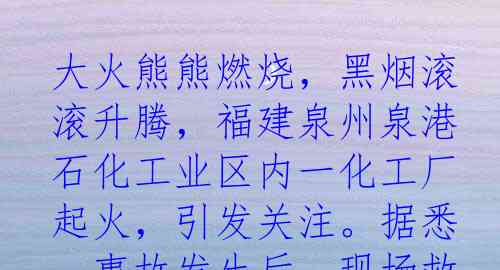 大火熊熊燃烧，黑烟滚
滚升腾，福建泉州泉港
石化工业区内一化工厂
起火，引发关注。据悉
，事故发生后，现场救